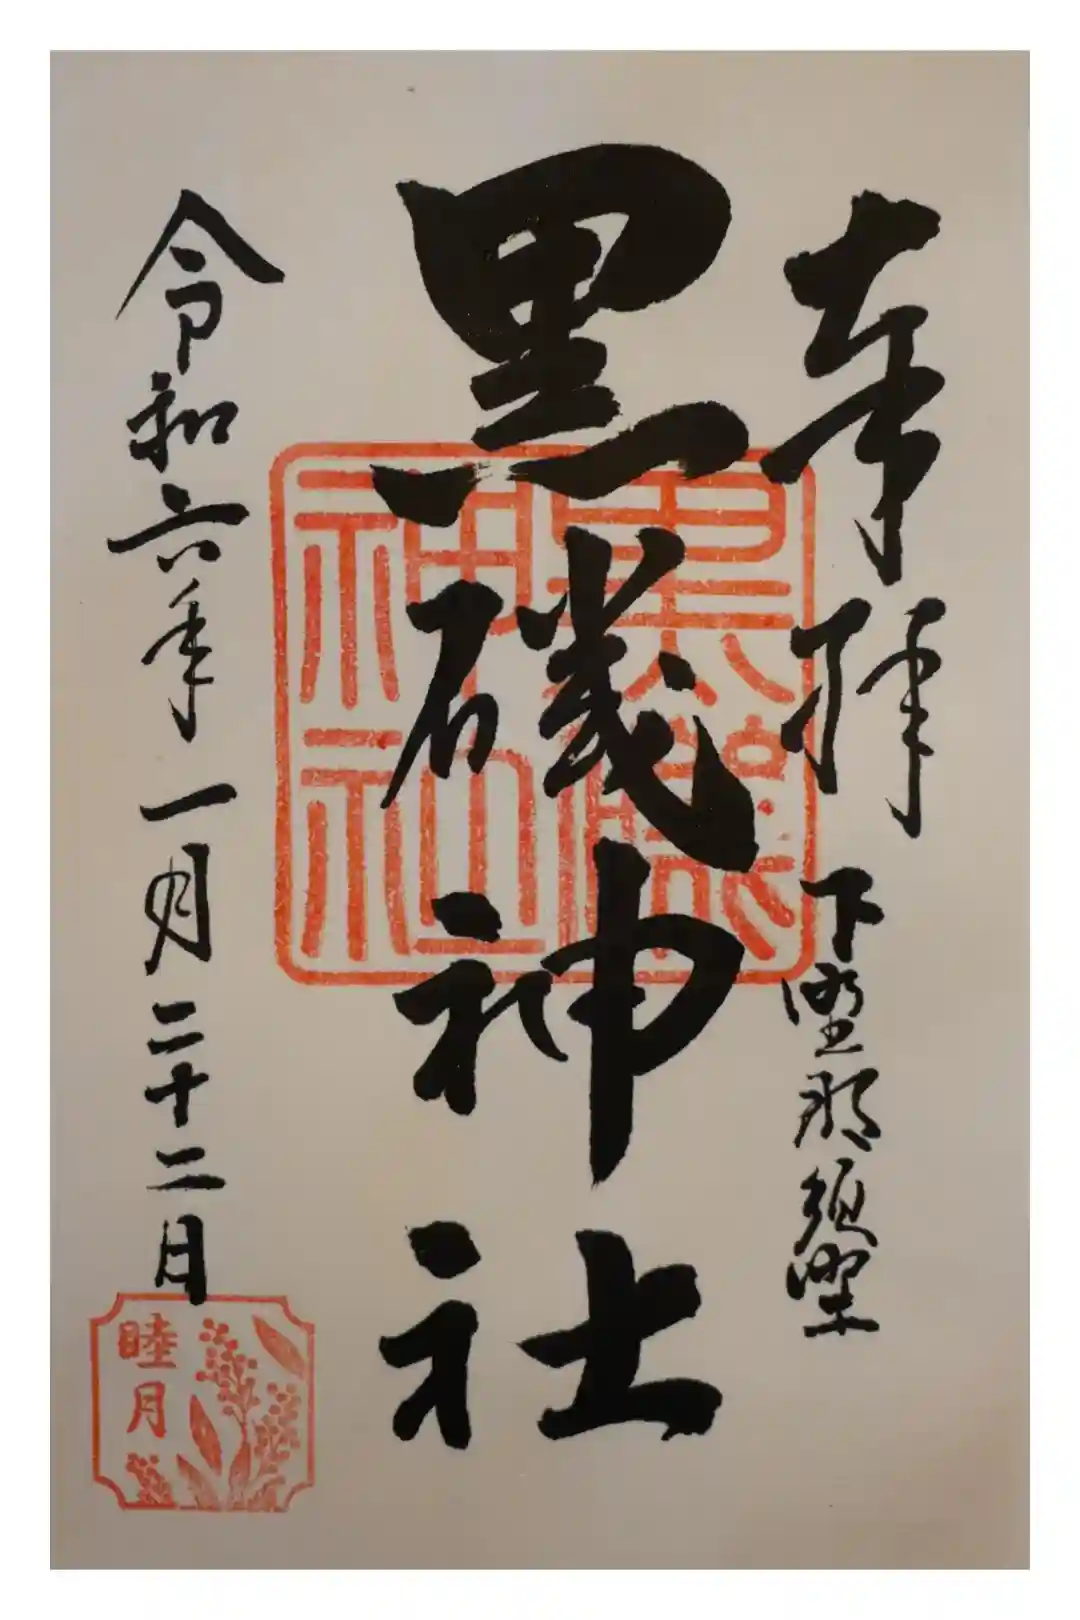 奉拝
下墅那須墅
黒磯神社
黒磯
神社
令和六年一月二十二日
睦月